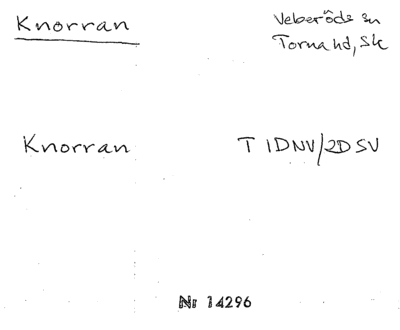 Knorran
Veberöds sn
Torna hd, Sk
Knorran
T 1DNV/2DSV
Nr 14296